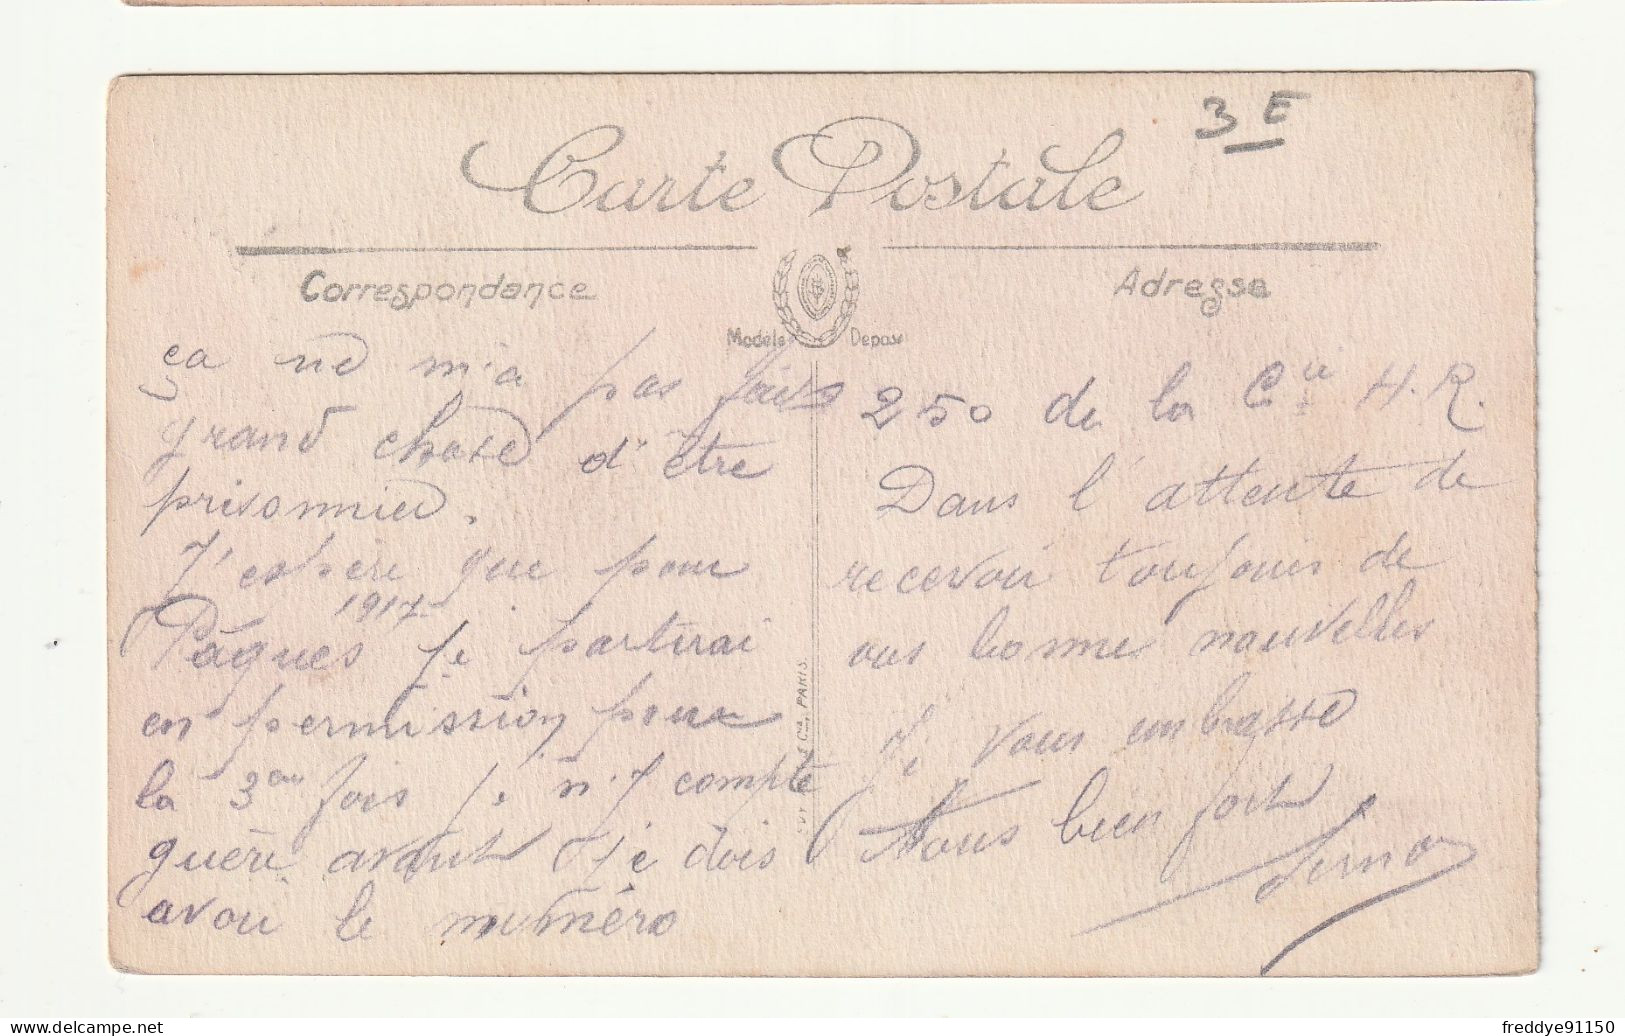 3 E
Carte Postale
Correspondance
Adresse
Modèle Déposé
ça ne m'a pas fais
grand chose d'être
prisonnier.
J'espère que pour
1917
Pâques je partirai
en permission pour
la 3em fois je n'y compte
guère avant je dois
avoir le numéro
& Cie, PARIS.
250 de la Cie H.R.
Dans l'attente de
recevoir toujours de
vos bonnes nouvelles
Je vous embrasse
tous bien fort
freddye91150